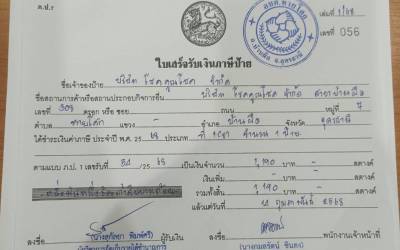 ภ.ป.๗
เล่มที่ 1/68
เลขที่ 056
ใบเสร็จรับเงินภาษีป้าย
ชื่อเจ้าของป้าย บริษัท โชคคูณโชค จำกัด
ชื่อสถานการค้าหรือสถานประกอบกิจการอื่น บริษัท โชคคูณโชค จำกัด สาขาบ้านผือ
เลขที่ 308 ตรอก หรือ ซอย ถนน หมู่ที่ 7
ตำบล แขวง อำเภอ บ้านผือ จังหวัด อุดรธานี
ได้ชำระเงินค่าภาษี ประจำปี พ.ศ. 25 68 ประเภท จำนวน 1 ป้าย
ตามแบบ ภ.ป. 1 เลขรับที่ 54 / 25 68 เป็นเงินจำนวน 1,190 บาท - สตางค์
เงินเพิ่ม - บาท - สตางค์
รวมทั้งสิ้น 1,190 บาท - สตางค์
แล้วแต่วันที่ 12 กุมภาพันธ์ 2568
ลงชื่อ ผู้รับเงิน ลงชื่อ พนักงานเจ้าหน้าที่